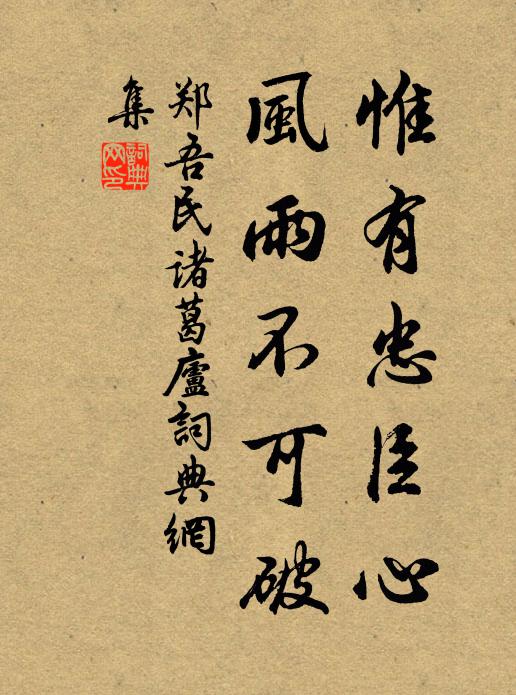 惟有忠臣心
風雨不可破
郑吾民诸葛廬詞典網
集
詞典网印